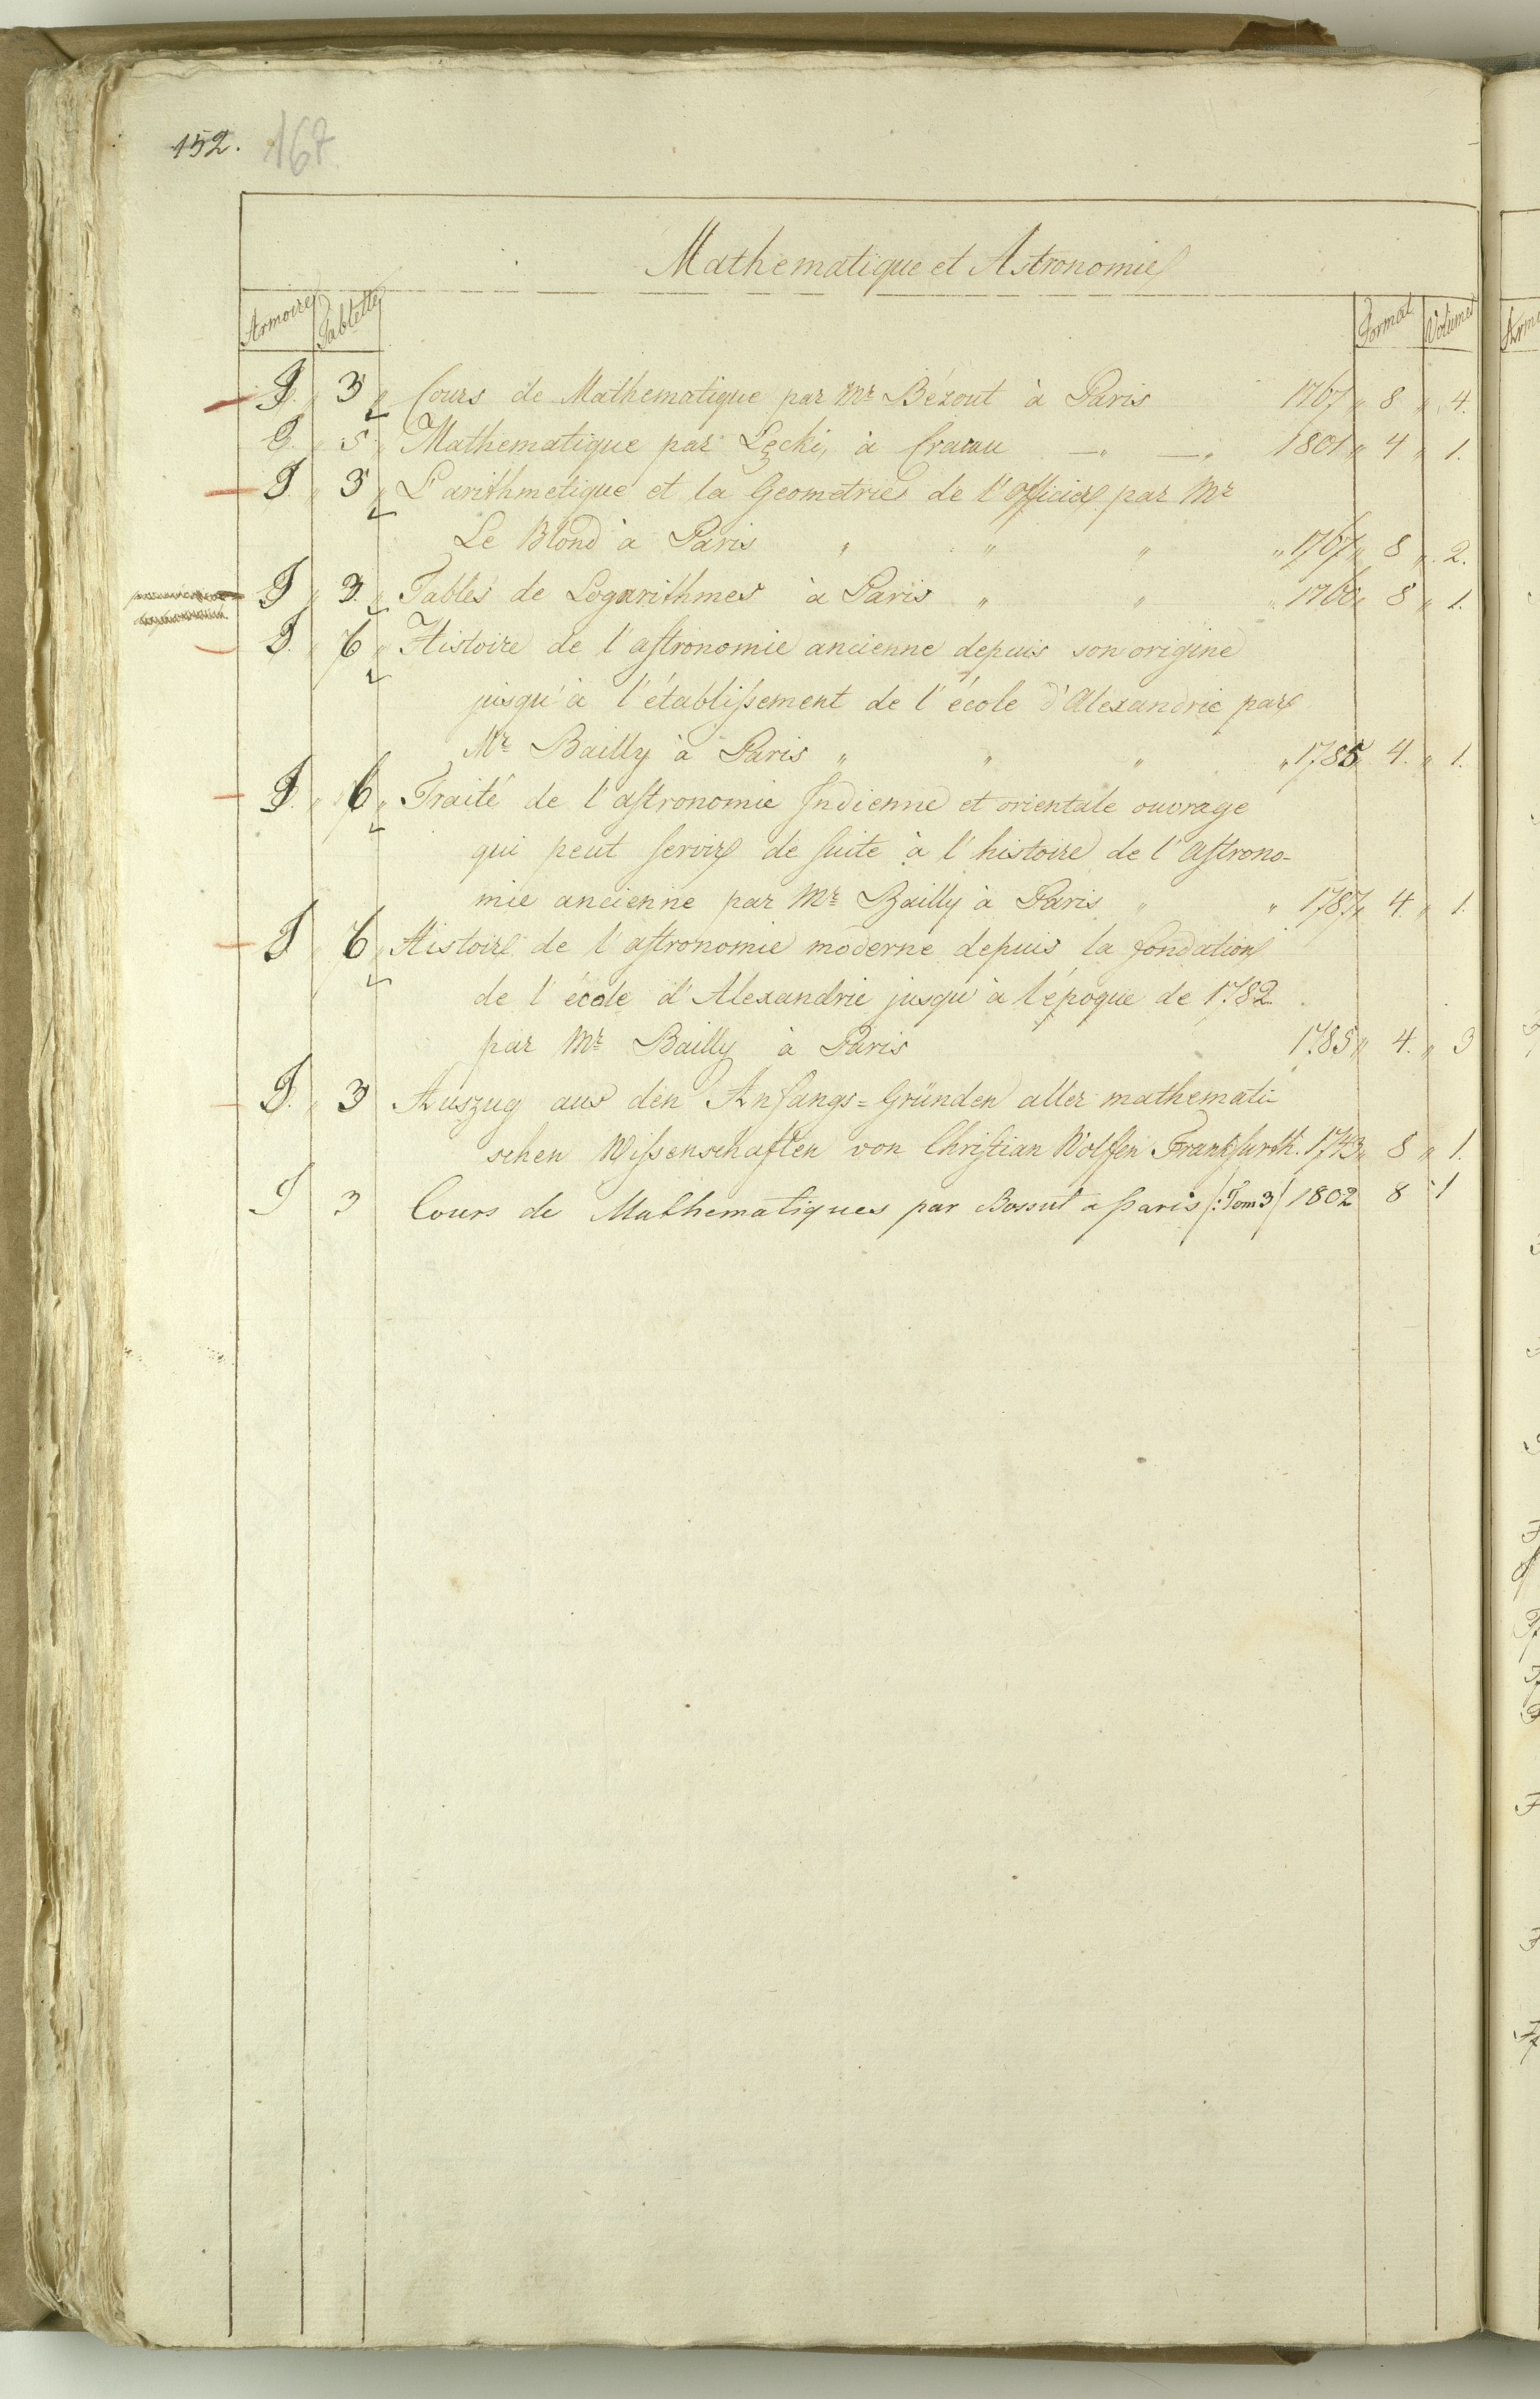 152. 167
Mathematique et Astronomie
Armoire Tablette Format Volumes
I. „ 3 „ Cours de Mathematique par Mr Bézout à Paris 1767 „ 8 „ 4.
„ 5 „ Mathematique par Łęcki, à Cracau —„ —„ 1801 „ 4 „ 1.
I „ 3 „ L'arithmetique et la Geometrie de l'Officier par Mr
Le Blond à Paris „ „ „ „ 1767 „ 8 „ 2.
I „ 3. „ Tables de Logarithmes à Paris „ „ „ 1760 „ 8 „ 1.
I. „ 6 „ Histoire de l'astronomie ancienne depuis son origine
jusqu'à l'établissement de l'école d'Alexandrie par
Mr Bailly à Paris „ „ „ „ 1785 4. „ 1.
I. „ 6 „ Traité de l'astronomie Indienne et orientale ouvrage
qui peut servir de suite à l'histoire de l'Astrono-
mie ancienne par Mr Bailly à Paris „ „ 1787 „ 4. „ 1.
I „ 6 Histoire de l'astronomie moderne depuis la fondation
de l'école d'Alexandrie jusqu'à l'époque de 1782.
par Mr Bailly à Paris 1785 „ 4. „ 3
I. „ 3 Auszug aus den Anfangs=Gründen aller mathemati-
schen Wissenschaften von Christian Wolffen Frankfurth. 1743 „ 8 „ 1.
I 3 Cours de Mathematiques par Bossut a Paris /: Tom 3/ 1802 8 1